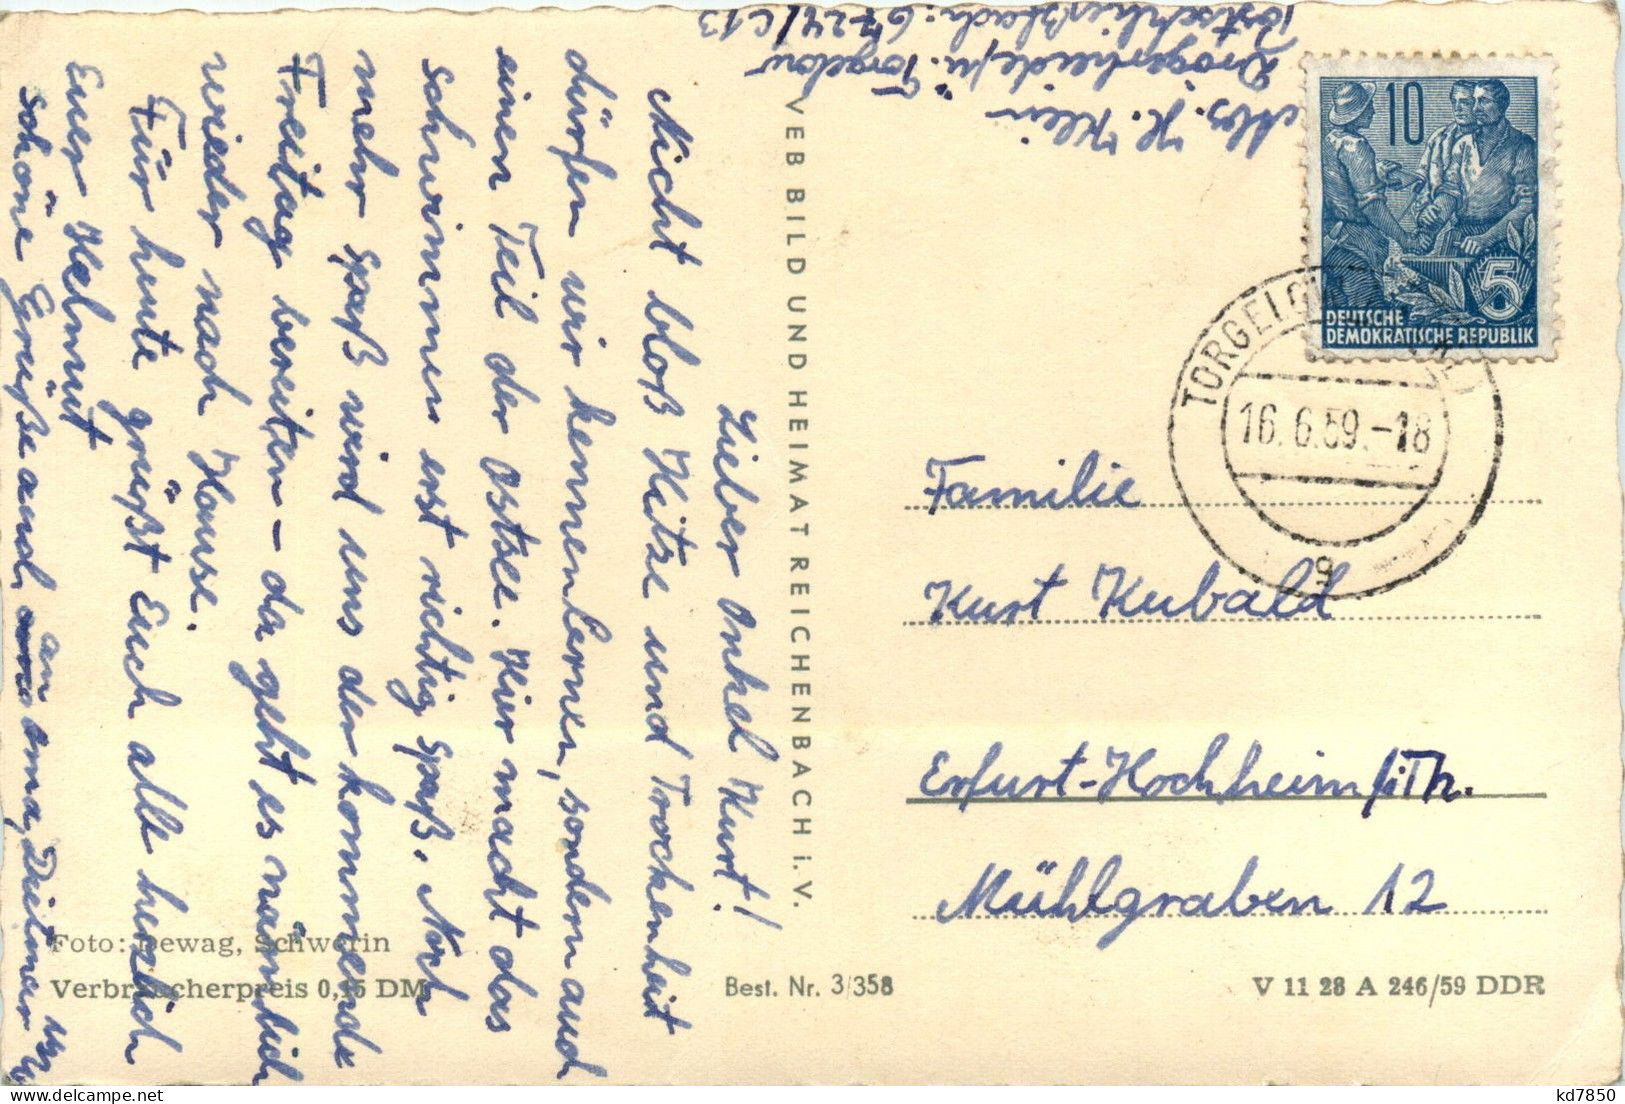 Lieber Onkel Kurt!
Nicht bloß Hitze und Trockenheit
dürfen wir kennenlernen, sondern auch
einen Teil der Ostsee. Hier macht das
schwimmen erst richtig Spaß. Noch
mehr Spaß wird uns der kommende
Freitag bereiten – da geht es nämlich
wieder nach Hause.
Für heute grüßt Euch alle herzlich
Euer Helmut
schöne Grüße auch an Oma, Dietmar
Foto: Dewag, Schwerin
Verbraucherpreis 0,15 DM
VEB BILD UND HEIMAT REICHENBACH i. V.
Best. Nr. 3/358
V 11 28 A 246/59 DDR
H. Klein
Drögerheide/ü. Torgelow
Postschließfach: 6724/C 13
10
5
DEUTSCHE
DEMOKRATISCHE REPUBLIK
16.6.59.-18
g
Familie
Kurt Kubald
Erfurt-Hochheim/i.Th.
Mühlgraben 12
kd7850